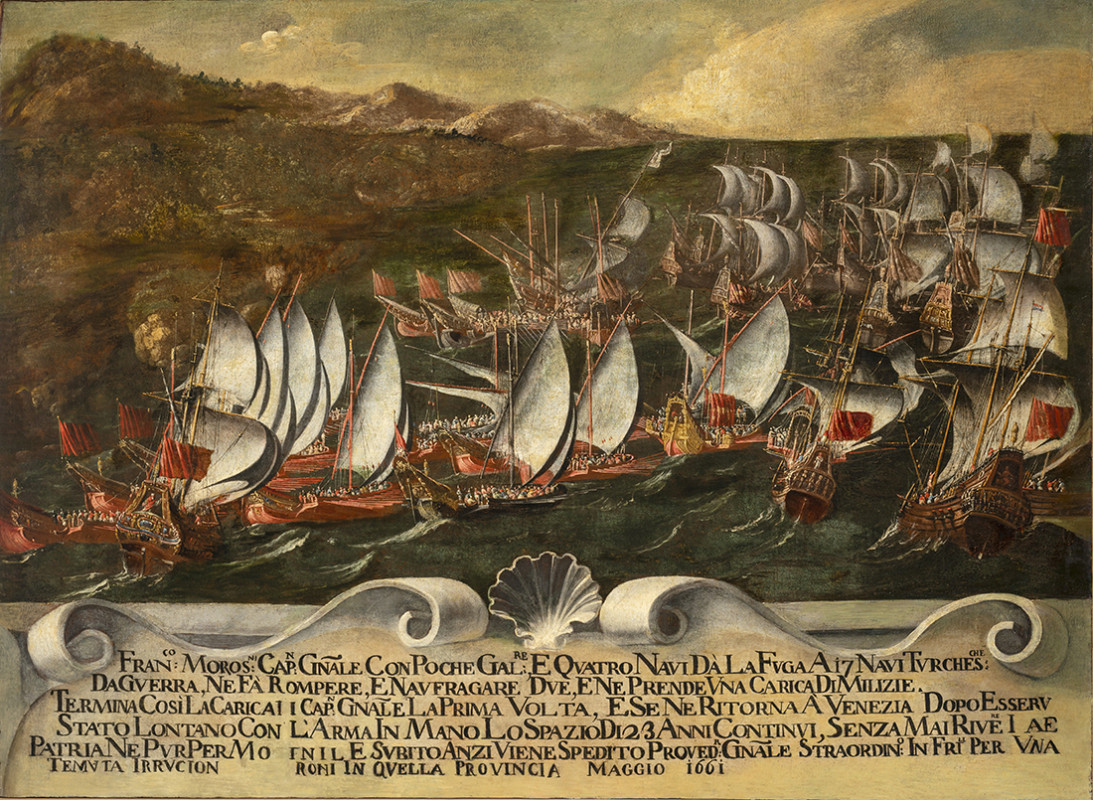 FRAN:CO MOROS: CAP:N GÑALE CON POCHE GAL:RE, E QVATRO NAVI DÀ LA FVGA A 17 NAVI TVRCHES:CHE
DA GVERRA, NE FÀ ROMPERE, E NAVFRAGARE DVE, E NE PRENDE VNA CARICA DI MILIZIE.
TERMINA COSÌ LA CARICA I CAP:N GÑALE LA PRIMA VOLTA, E SE NE RITORNA A VENEZIA DOPO ESSERV
STATO LONTANO CON L'ARMA IN MANO LO SPAZIO DI 23 ANNI CONTINVI, SENZA MAI I AE
PATRIA NE PVR PER MO E SVBITO ANZI VIENE SPEDITO PROVED:R GÑALE STRAORDIN:O IN PER VNA
TEMVTA IRRVCION RONI IN QVELLA PROVINCIA MAGGIO 1661